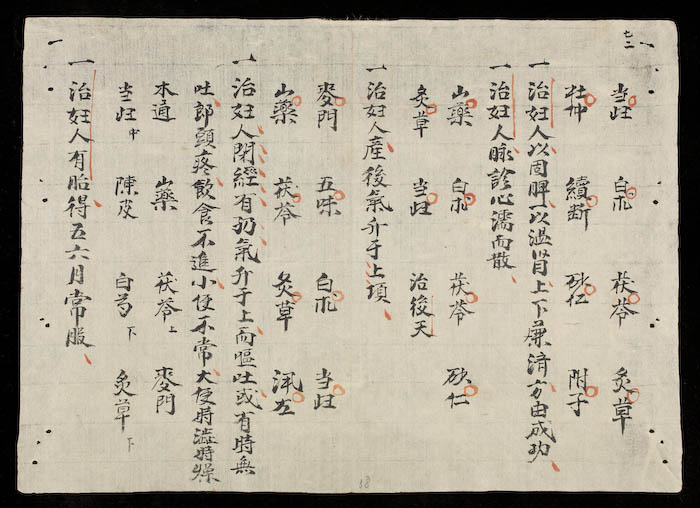 七二
当归 白朮 茯苓 炙草
杜仲 續断 砂仁 附子
一治妇人以固脾以溫肾上下兼済方由成功
一治妇人脉診心濡而散
山藥 白朮 茯苓 砍仁
炙草 当归 治後天
一治妇人産後氣升于上項
麥門 五味 白朮 当归
山藥 茯苓 炙草
一治妇人閉經有扔氣升于上而嘔吐或有時無
吐郎頭疼飲食不進小便不常大便時澁時燥
木通 山藥 茯苓上 麥門
当归中 陳皮 白芍下 炙草下
一治妇人有胎得五六月常服
58